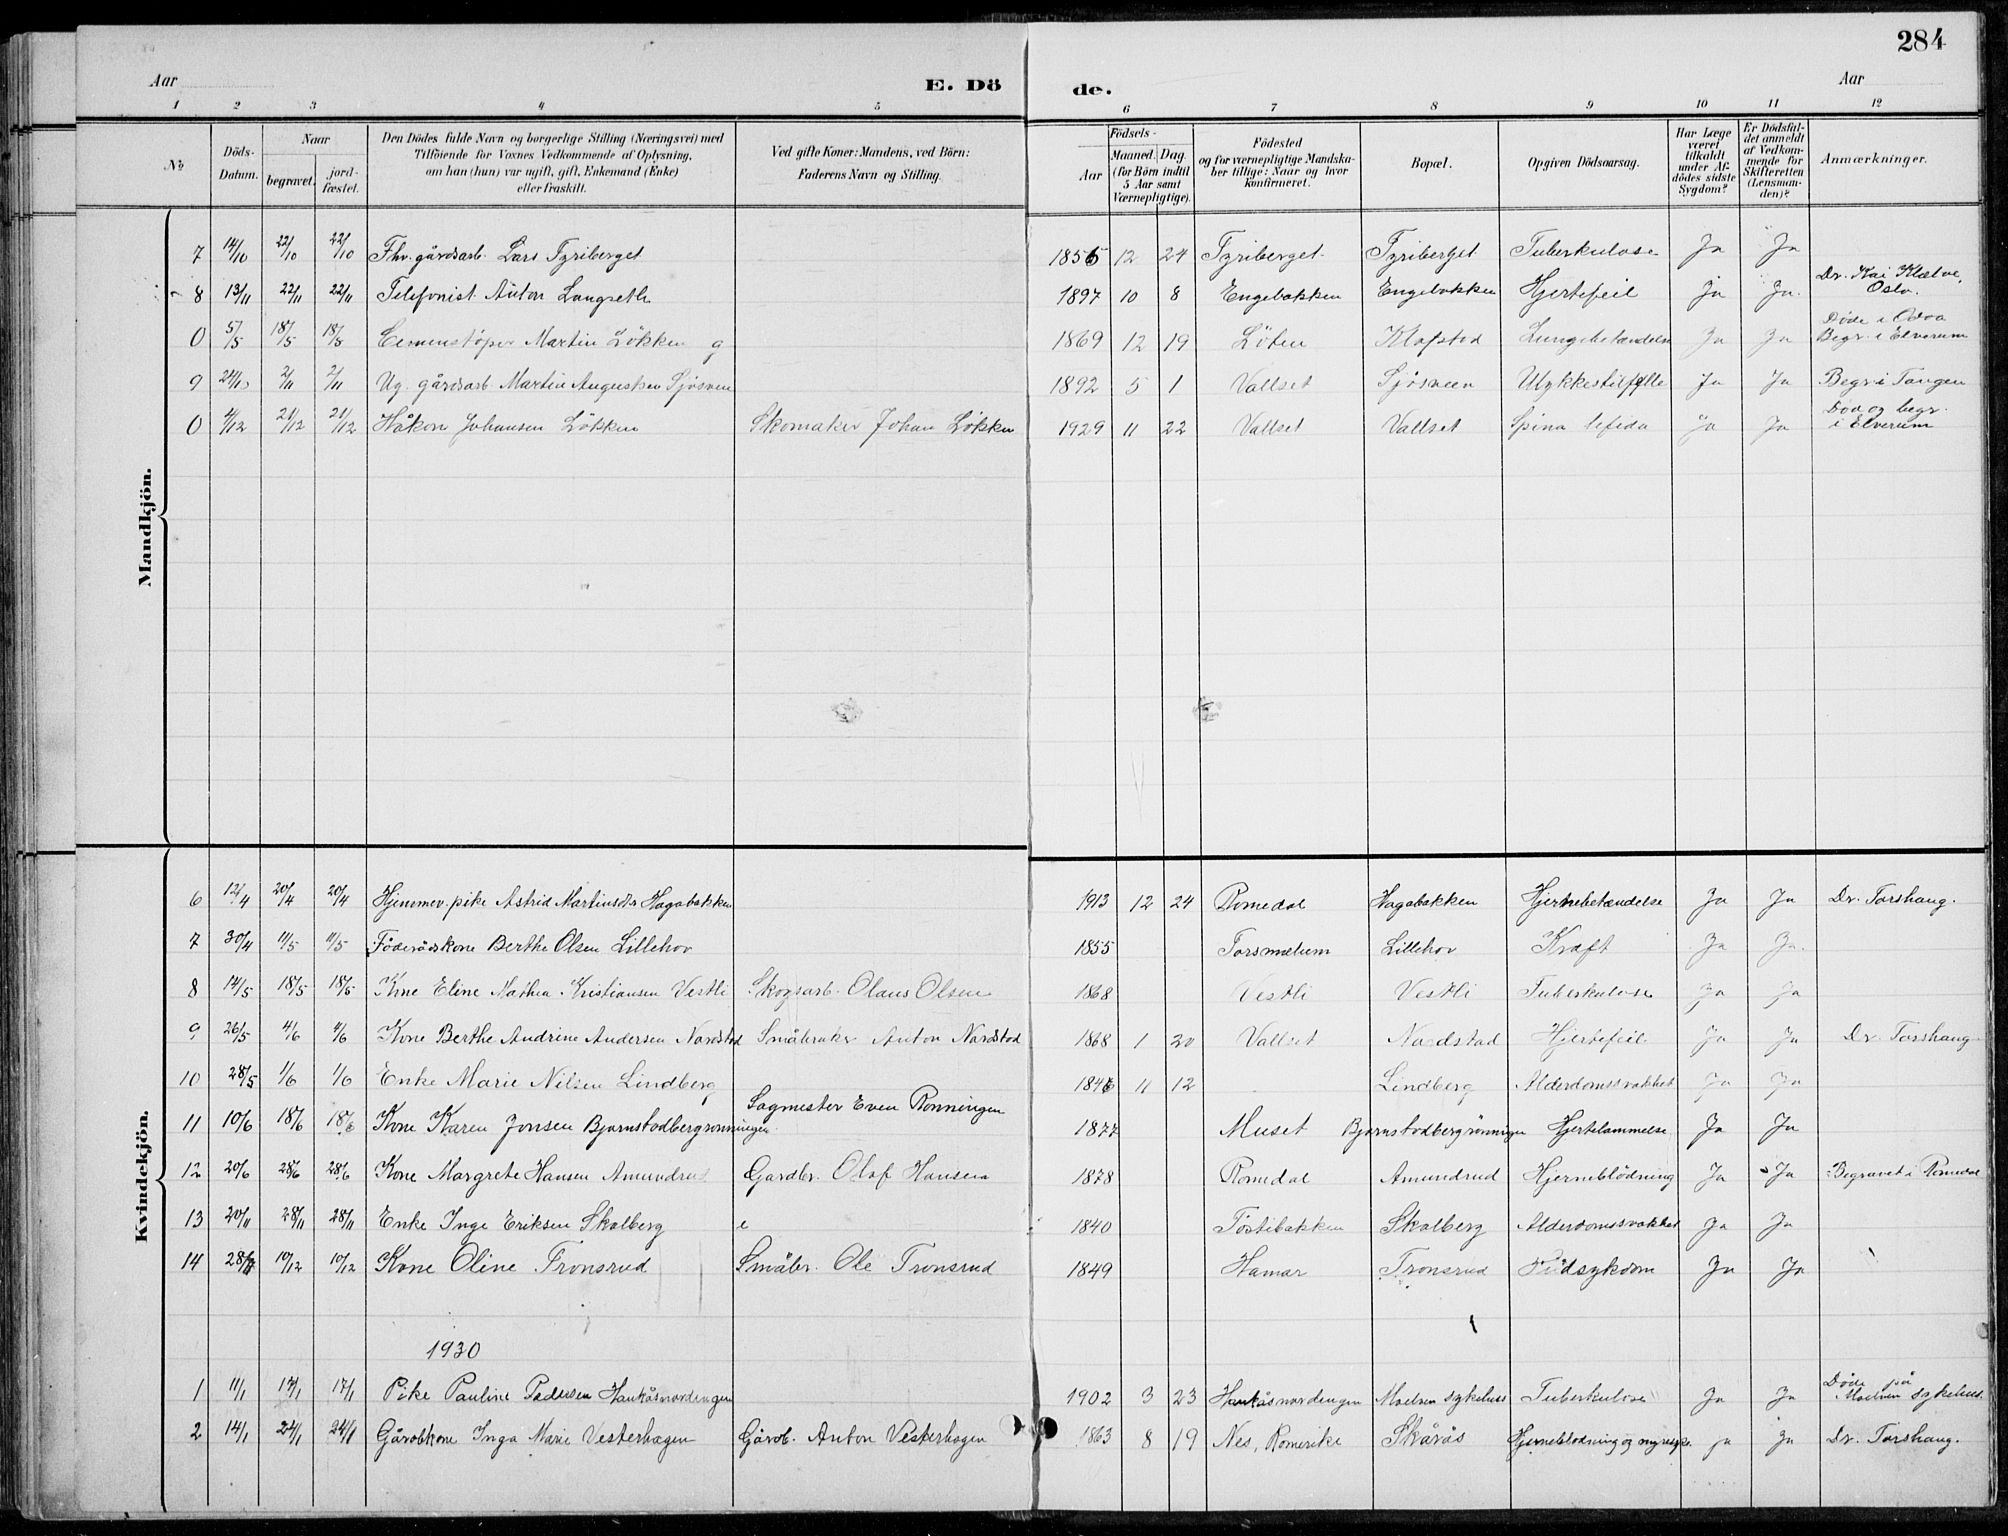 284
Aar
E. Dö de.
Aar
1 2 3 4 5 6 7 8 9 10 11 12
No
Döds-Datum.
Naar
begravet.
jord-fæstet.
Den Dödes fulde Navn og borgerlige Stilling (Næringsvei) med
Tilföiende for Voxnes Vedkommende af Oplysning,
om han (hun) var ugift, gift, Enkemand (Enke)
eller fraskilt.
Ved gifte Koner: Mandens, ved Börn:
Faderens Navn og Stilling.
Födsels-
Aar
Maaned.
Dag
(for Börn indtil
5 Aar samt
Værnepligtige).
Födested
og for værnepligtige Mandska-
ber tillige: Naar og hvor
konfirmeret.
Bopæl.
Opgiven Dödsaarsag.
Har Læge
været
tilkaldt
under Af-
dödes sidste
Sygdom?
Er Dödsfal-
det anmeldt
af Vedkom-
mende for
Skifteretten
(Lensman-
den)?
Anmærkninger.
Mandkjön.
7 14/10 22/10 22/10 Fhv. gårdsarb. Lars Fyriberget 1856 12 24 Fyriberget Fyriberget Tuberkulose Ja Ja
8 13/11 22/11 22/11 Telefonist Anton Langseth 1897 10 8 Engebakken Engebakken Hjertefeil Ja Ja Dr. Kai
Oslo.
0 5/5 18/5 18/5 Cementstöper Martin Lökken g 1869 12 19 Löten Klofstad Lungebetændelse Ja Ja Döde i
Begr. i Elverum
9 24/10 2/11 2/11 Ug. gårdsarb. Martin Augustsen Sjösveen 1892 5 1 Vallset Sjösveen Ulykkestilfelle Ja Ja Begr. i Tangen
0 4/12 21/12 21/12 Håkon Johansen Lökken Skomaker Johan Lökken 1929 11 22 Vallset Vallset Spina bifida Ja Ja Död og begr.
i Elverum
Kvindekjön.
6 12/4 20/4 20/4 Hjemmev. pike Astrid Martinsdtr Hagabakken 1913 12 24 Romedal Hagabakken Hjernebetændelse Ja Ja Dr. Torshaug.
7 30/4 11/5 11/5 Föderådskone Berthe Olsen Lillehov 1855 Torsmælum Lillehov Kræft Ja Ja
8 14/5 18/5 18/5 Kone Eline Mathea Kristiansen Vestli Skogsarb. Olaus Olsen 1868 Vestli Vestli Tuberkulose Ja Ja
9 26/5 4/6 4/6 Kone Berthe Andrine Andersen Nordstad Småbruker Anton Nordstad 1868 1 20 Vallset Nordstad Hjertefeil Ja Ja Dr. Torshaug
10 28/5 1/6 1/6 Enke Marie Nilsen Lindberg 1846 11 12 Lindberg Alderdomssvakhet Ja Ja
11 10/6 18/6 18/6 Kone Karen Jonsen Bjørnstadbergrønningen Sagmester Even Rønningen 1877 Muset Bjørnstadbergrønningen Hjertelammelse Ja Ja
12 20/6 28/6 28/6 Kone Margrete Hansen Amundrud Gardbr. Olaf Hansen 1878 Romedal Amundrud Hjerneblödning Ja Ja Begravet i Romedal
13 20/11 28/11 28/11 Enke Inge Eriksen Skalberg 1840 Töstibakken Skalberg Alderdomssvakhet Ja Ja
14 28/11 10/12 10/12 Kone Oline Tronsrud Småbr. Ole Tronsrud 1849 Hamar Tronsrud Ja Ja
1930
1 11/1 17/1 17/1 Pike Pauline Pedersen Haukåsnordengen 1902 3 23 Haukåsnordengen Moelven sykehus Tuberkulose Ja Ja Döde på
Moelven sykehus.
2 14/1 24/1 24/1 Gårdbkone Inga Marie Vesterhagen Gårdb. Anton Vesterhagen 1863 8 19 Nes, Romerike Skårås Hjerneblödning og nyresyke. ja Ja Dr. Torshaug.